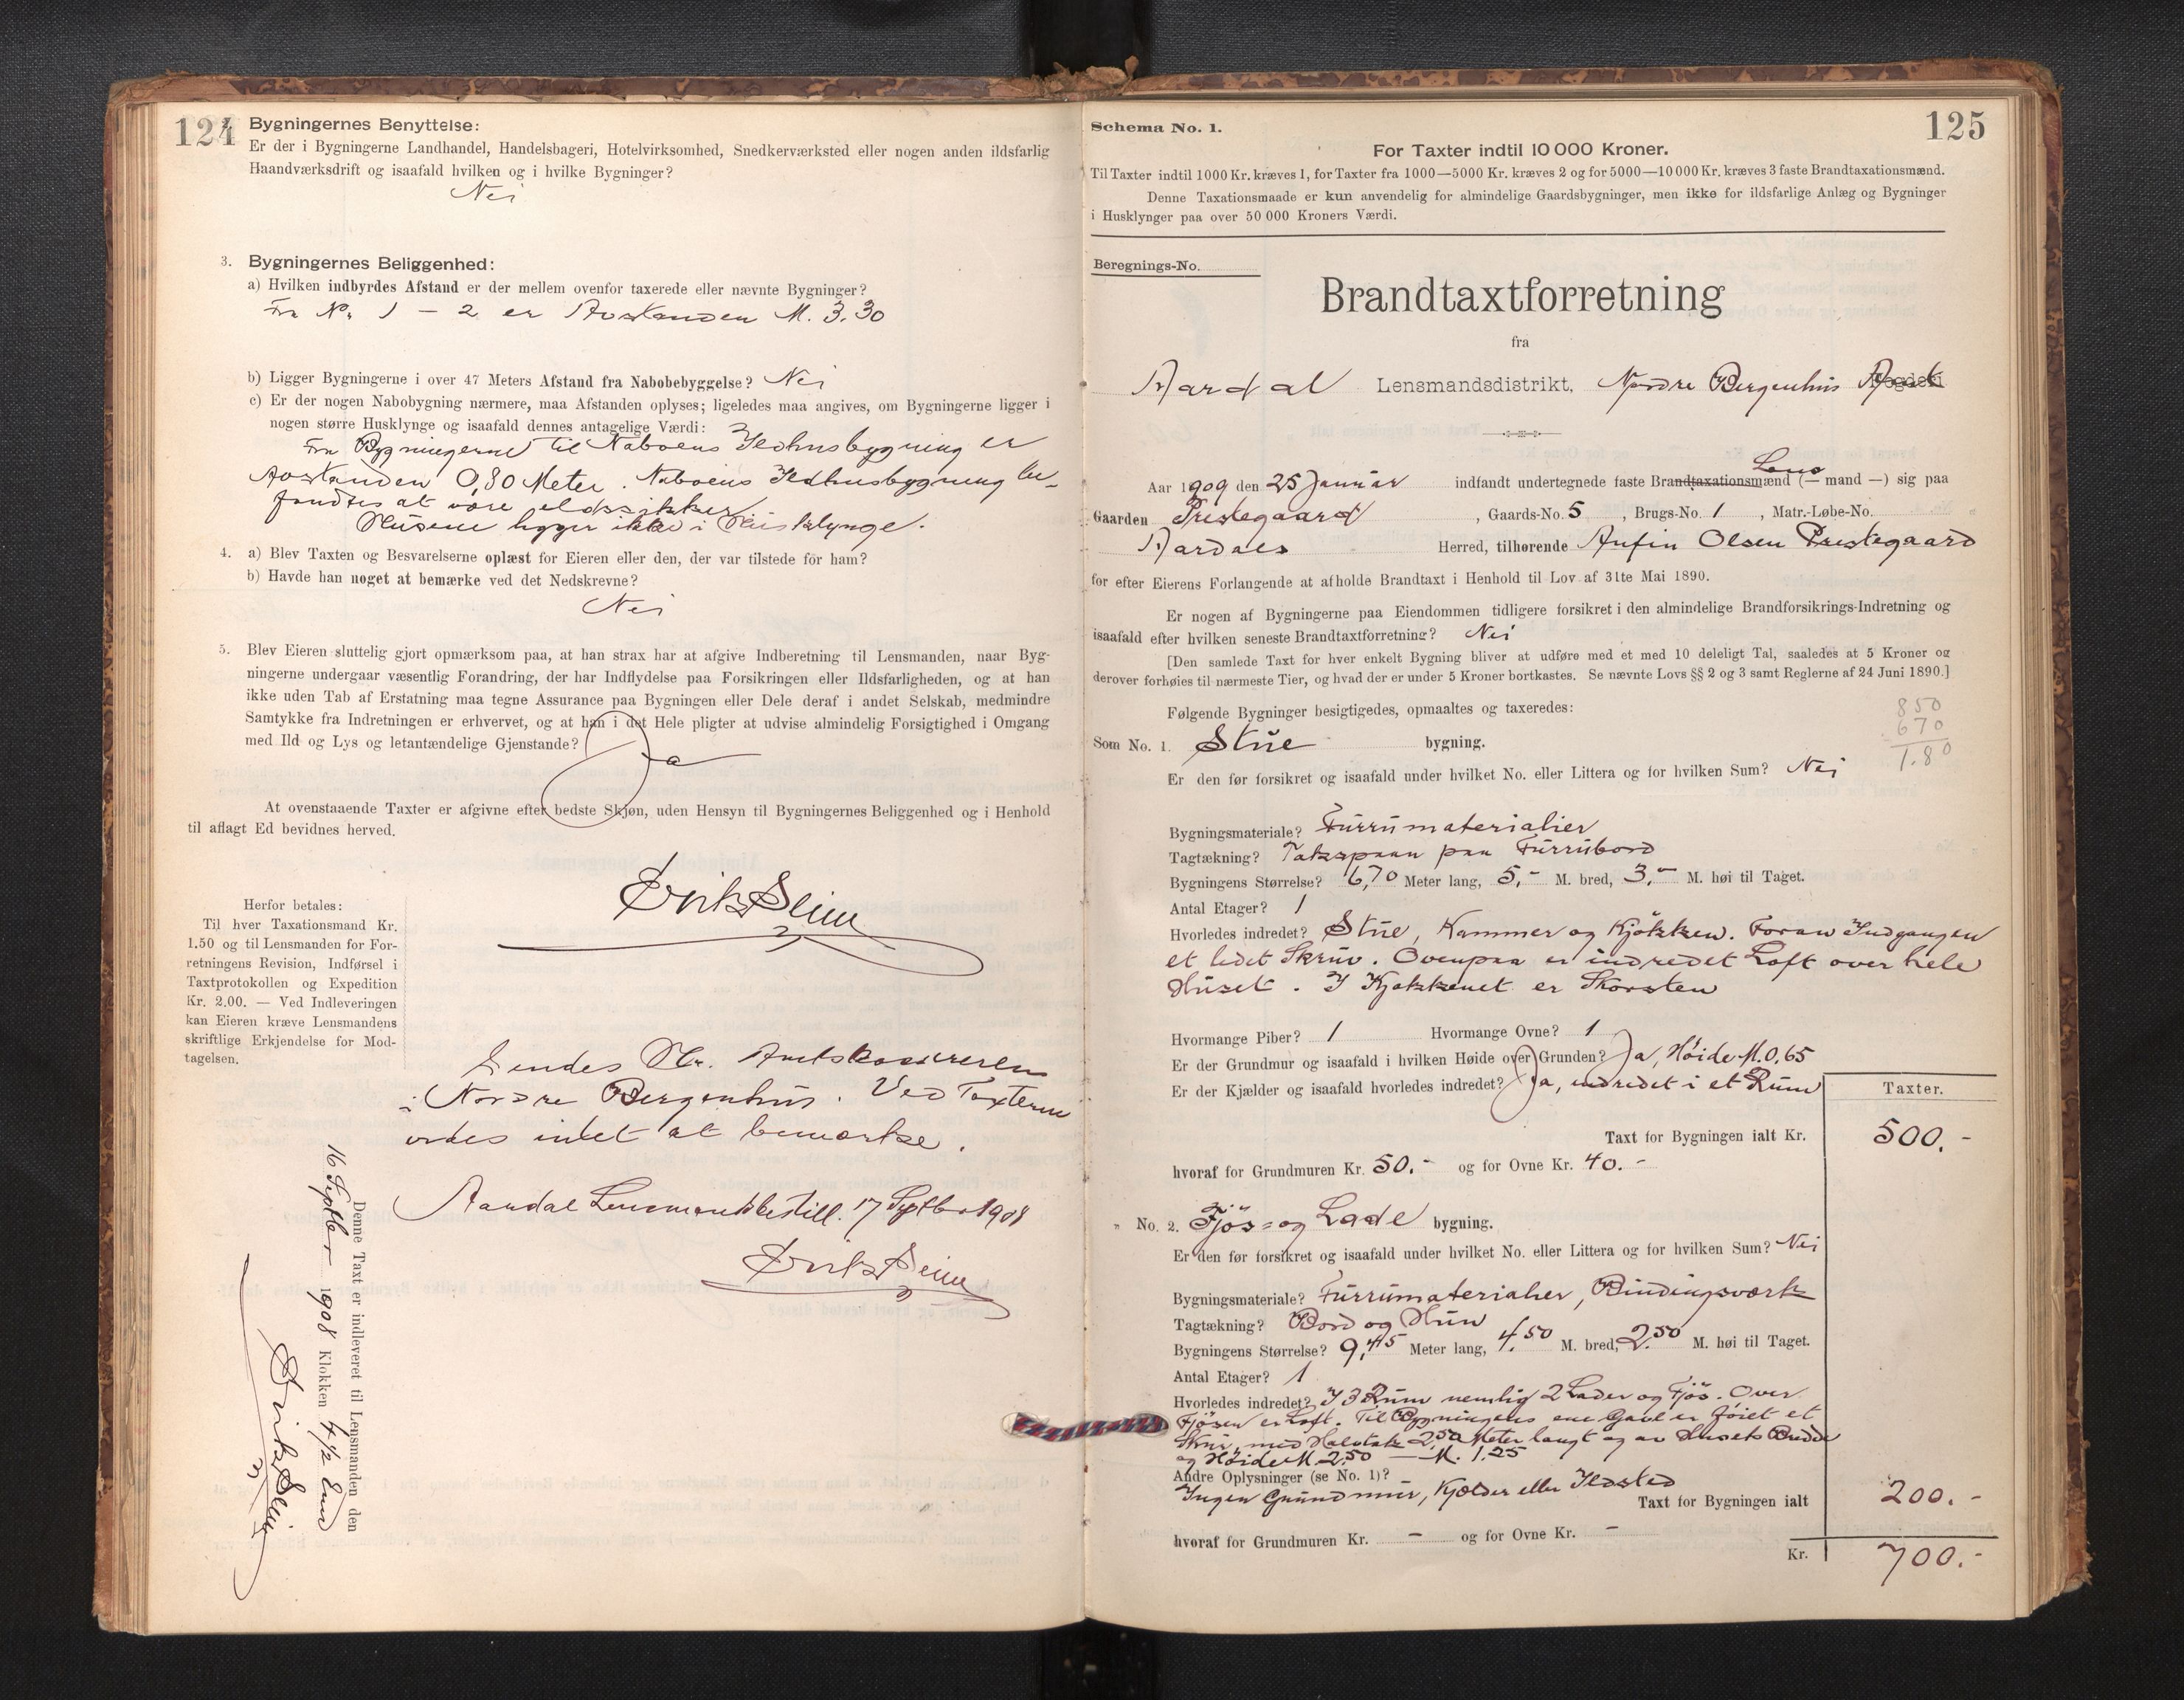 124
2. Bygningernes Benyttelse:
Er der i Bygningerne Landhandel, Handelsbageri, Hotelvirksomhed, Snedkerværksted eller nogen anden ildsfarlig
Haandværksdrift og isaafald hvilken og i hvilke Bygninger?
Nei
3. Bygningernes Beliggenhed:
a) Hvilken indbyrdes Afstand er der mellem ovenfor taxerede eller nævnte Bygninger?
Fra Nr 1 - 2 er Avstanden M. 3.30
b) Ligger Bygningerne i over 47 Meters Afstand fra Nabobebyggelse? Nei
c) Er der nogen Nabobygning nærmere, maa Afstanden oplyses; ligeledes maa angives, om Bygningerne ligger i
nogen større Husklynge og isaafald dennes antagelige Værdi:
Fra Bygningerne til Naboens Ildhusbygning er
Avstanden 0,80 Meter. Naboens Ildhusbygning be-
fandtes at være eldssikker
Husene ligger ikke i Husklynge.
4. a) Blev Taxten og Besvarelserne oplæst for Eieren eller den, der var tilstede for ham?
b) Havde han noget at bemærke ved det Nedskrevne?
Nei
5. Blev Eieren sluttelig gjort opmærksom paa, at han strax har at afgive Indberetning til Lensmanden, naar Byg-
ningerne undergaar væsentlig Forandring, der har Indflydelse paa Forsikringen eller Ildsfarligheden, og at han
ikke uden Tab af Erstatning maa tegne Assurance paa Bygningen eller Dele deraf i andet Selskab, medmindre
Samtykke fra Indretningen er erhvervet, og at han i det Hele pligter at udvise almindelig Forsigtighed i Omgang
med Ild og Lys og letantændelige Gjenstande?
Ja
At ovenstaaende Taxter er afgivne efter bedste Skjøn, uden Hensyn til Bygningernes Beliggenhed og i Henhold
til aflagt Ed bevidnes herved.
Erik Seim
Herfor betales:
Til hver Taxationsmand Kr.
1.50 og til Lensmanden for For-
retningens Revision, Indførsel i
Taxtprotokollen og Expedition
Kr. 2.00. — Ved Indleveringen
kan Eieren kræve Lensmandens
skriftlige Erkjendelse for Mod-
tagelsen.
Sendes Hr. Amtskassereren
i Nordre Bergenhus. Ved Taxterne
vides intet at bemærke.
Aardal Lensmandsbestill. 17 Septbr 1908
Erik Seim
Denne Taxt er indleveret til Lensmanden den
16 Septber 1908 Klokken 4 1/2 Em
Erik Seim
125
Schema No. 1.
For Taxter indtil 10 000 Kroner.
Til Taxter indtil 1000 Kr. kræves 1, for Taxter fra 1000—5000 Kr. kræves 2 og for 5000—10 000 Kr. kræves 3 faste Brandtaxationsmænd.
Denne Taxationsmaade er kun anvendelig for almindelige Gaardsbygninger, men ikke for ildsfarlige Anlæg og Bygninger
i Husklynger paa over 50 000 Kroners Værdi.
Beregnings-No.
Brandtaxtforretning
fra
Aardal Lensmandsdistrikt, Nordre Bergenhus Amt Fogderi
Aar 1909 den 25 Januar indfandt undertegnede faste Brandtaxationsmænd (— Lens mand —) sig paa
Gaarden Prestegaard, Gaards-No. 5, Brugs-No. 1, Matr.-Løbe-No.
Aardals Herred, tilhørende Anfin Olsen Prestegaard
for efter Eierens Forlangende at afholde Brandtaxt i Henhold til Lov af 31te Mai 1890.
Er nogen af Bygningerne paa Eiendommen tidligere forsikret i den almindelige Brandforsikrings-Indretning og
isaafald efter hvilken seneste Brandtaxtforretning? Nei
[Den samlede Taxt for hver enkelt Bygning bliver at udføre med et med 10 deleligt Tal, saaledes at 5 Kroner og
derover forhøies til nærmeste Tier, og hvad der er under 5 Kroner bortkastes. Se nævnte Lovs §§ 2 og 3 samt Reglerne af 24 Juni 1890.]
Følgende Bygninger besigtigedes, opmaaltes og taxeredes:
850
670
1.80
Som No. 1. Stue bygning.
Er den før forsikret og isaafald under hvilket No. eller Littera og for hvilken Sum? Nei
Bygningsmateriale? Furrumaterialier
Tagtækning? Takspaan paa Furrubord
Bygningens Størrelse? 6,70 Meter lang, 5,- M. bred, 3,- M. høi til Taget.
Antal Etager? 1
Hvorledes indredet? Stue, Kammer og Kjøkken. Foran Indgangen
et lidet Skruv. Ovenpaa er indredet Loft over hele
Huset. I Kjøkkenet er Skorsten
Hvormange Piber? 1 Hvormange Ovne? 1
Er der Grundmur og isaafald i hvilken Høide over Grunden? Ja, Høide M. 0,65
Er der Kjælder og isaafald hvorledes indredet? Ja, indredet i et Rum
Taxter.
Taxt for Bygningen ialt Kr. 500.-
hvoraf for Grundmuren Kr. 50.- og for Ovne Kr. 40.-
" No. 2. Fjøs- og Lade bygning.
Er den før forsikret og isaafald under hvilket No. eller Littera og for hvilken Sum? Nei
Bygningsmateriale? Furrumaterialier, Bindingsværk
Tagtækning? Bord og Hun
Bygningens Størrelse? 9,45 Meter lang, 4,50 M. bred, 2,50 M. høi til Taget.
Antal Etager? 1
Hvorledes indredet? I 3 Rum nemlig 2 Lader og Fjøs. Over
Fjøsen er Loft. Til Bygningens ene Gavl er føiet et
Skur med Halvtak 2,50 Meter langt og av Husets Bredde
og Høide M. 2,50 — M. 1,25
Andre Oplysninger (se No. 1)?
Ingen Grundmur, Kjelder eller Ildsted
Taxt for Bygningen ialt 200.-
hvoraf for Grundmuren Kr. - og for Ovne Kr. -
Kr. 700.-